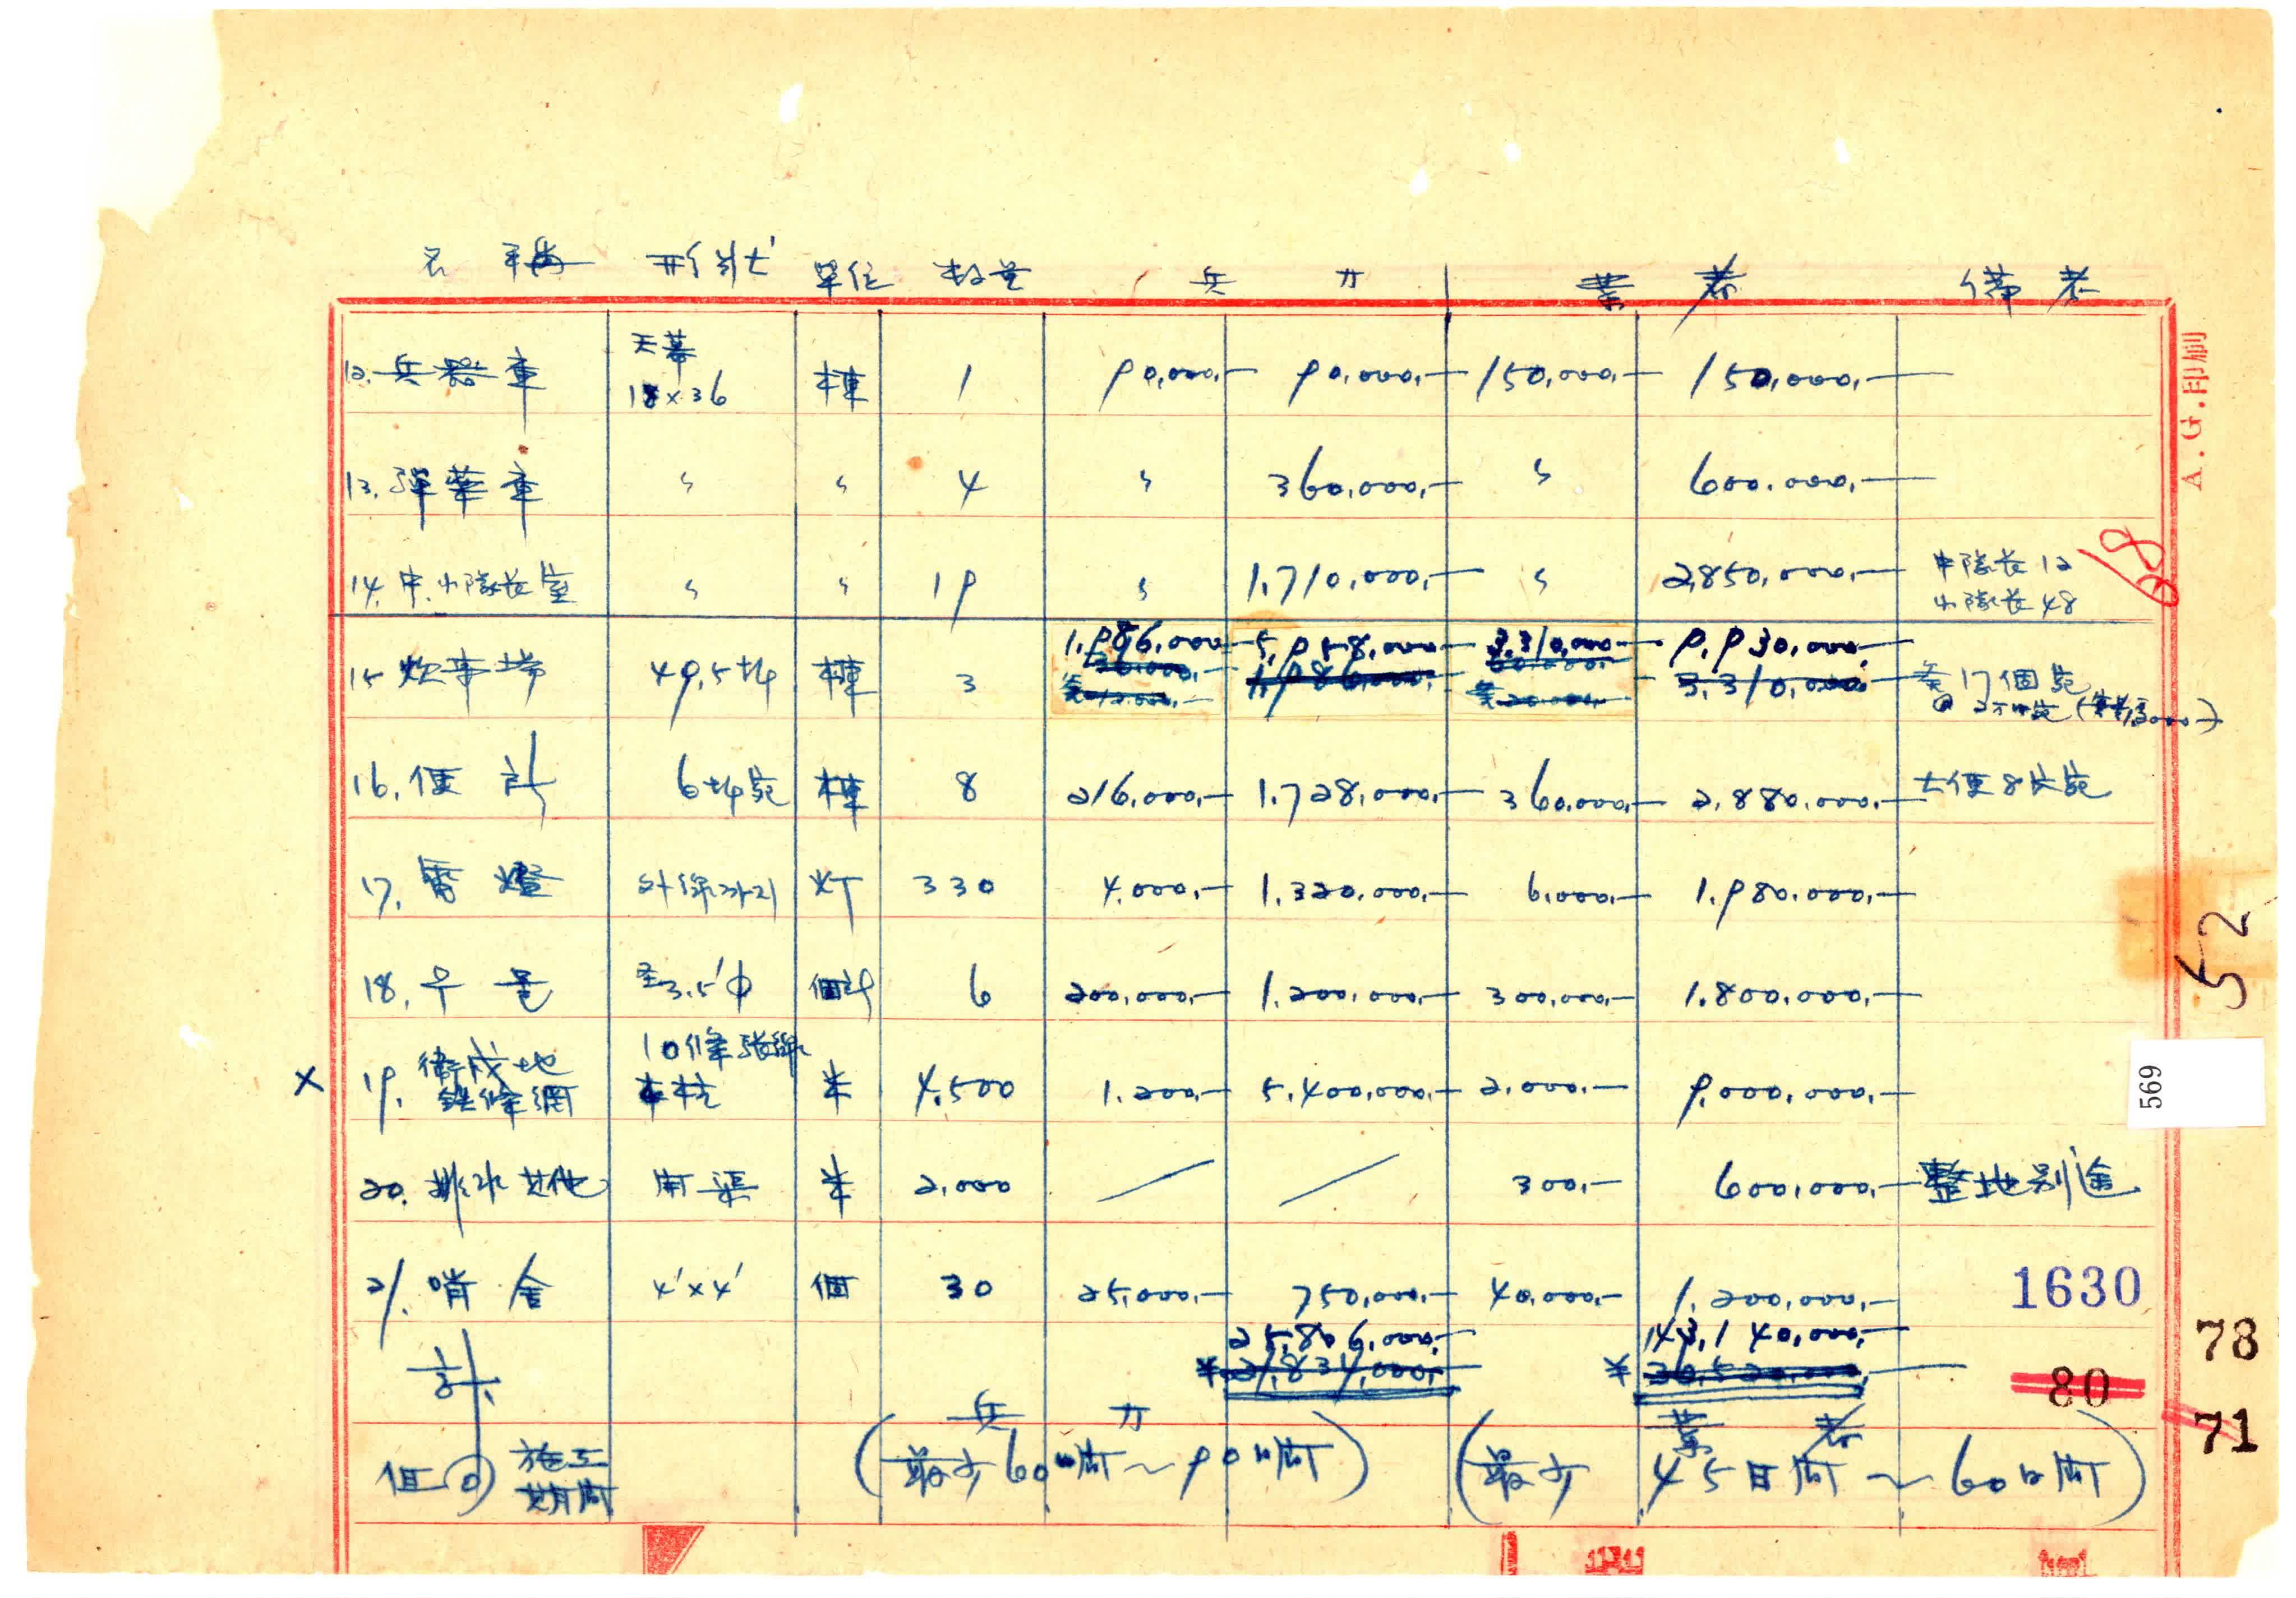 名 稱 形狀 單位 数量 兵 力 業 者 備 考
12. 兵器庫 天幕 18×36 棟 1 90,000,- 90,000,- 150,000,- 150,000,-
13. 彈藥庫 〃 〃 4 〃 360,000,- 〃 600,000,-
14. 中.小隊長室 〃 〃 19 〃 1,710,000,- 〃 2,850,000,- 中隊長 12
小隊長 48
1,986,000 5,958,000- 3,310,000- 9,930,000-
15 炊事場 49,5坪 棟 3 1,986,000,- 3,310,000-
17個宛
16. 便 所 6坪宛 棟 8 216,000,- 1,728,000,- 360,000,- 2,880,000,- 大便8㞮宛
17. 電 燈 外線 灯 330 4,000,- 1,320,000,- 6,000,- 1,980,000,-
18. 3.5'φ 個所 6 200,000,- 1,200,000,- 300,000,- 1,800,000,-
10條張線
× 19. 衛戍地 鉄條網 木杭 米 4,500 1,200,- 5,400,000,- 2,000,- 9,000,000,-
20. 排水其他 開渠 米 2,000 / / 300,- 600,000,- 整地別途
21. 哨舍 4'×4' 個 30 25,000,- 750,000,- 40,000,- 1,200,000,-
25,806,000,- 143,140,000,-
計 ¥21,834,000,- ¥36,520,000,-
兵 力 業 者
但 施工 期間 (最少60日間~90日間) (最少 45日間~60日間)
A.G.印刷
68
52
569
1630
78
80
71